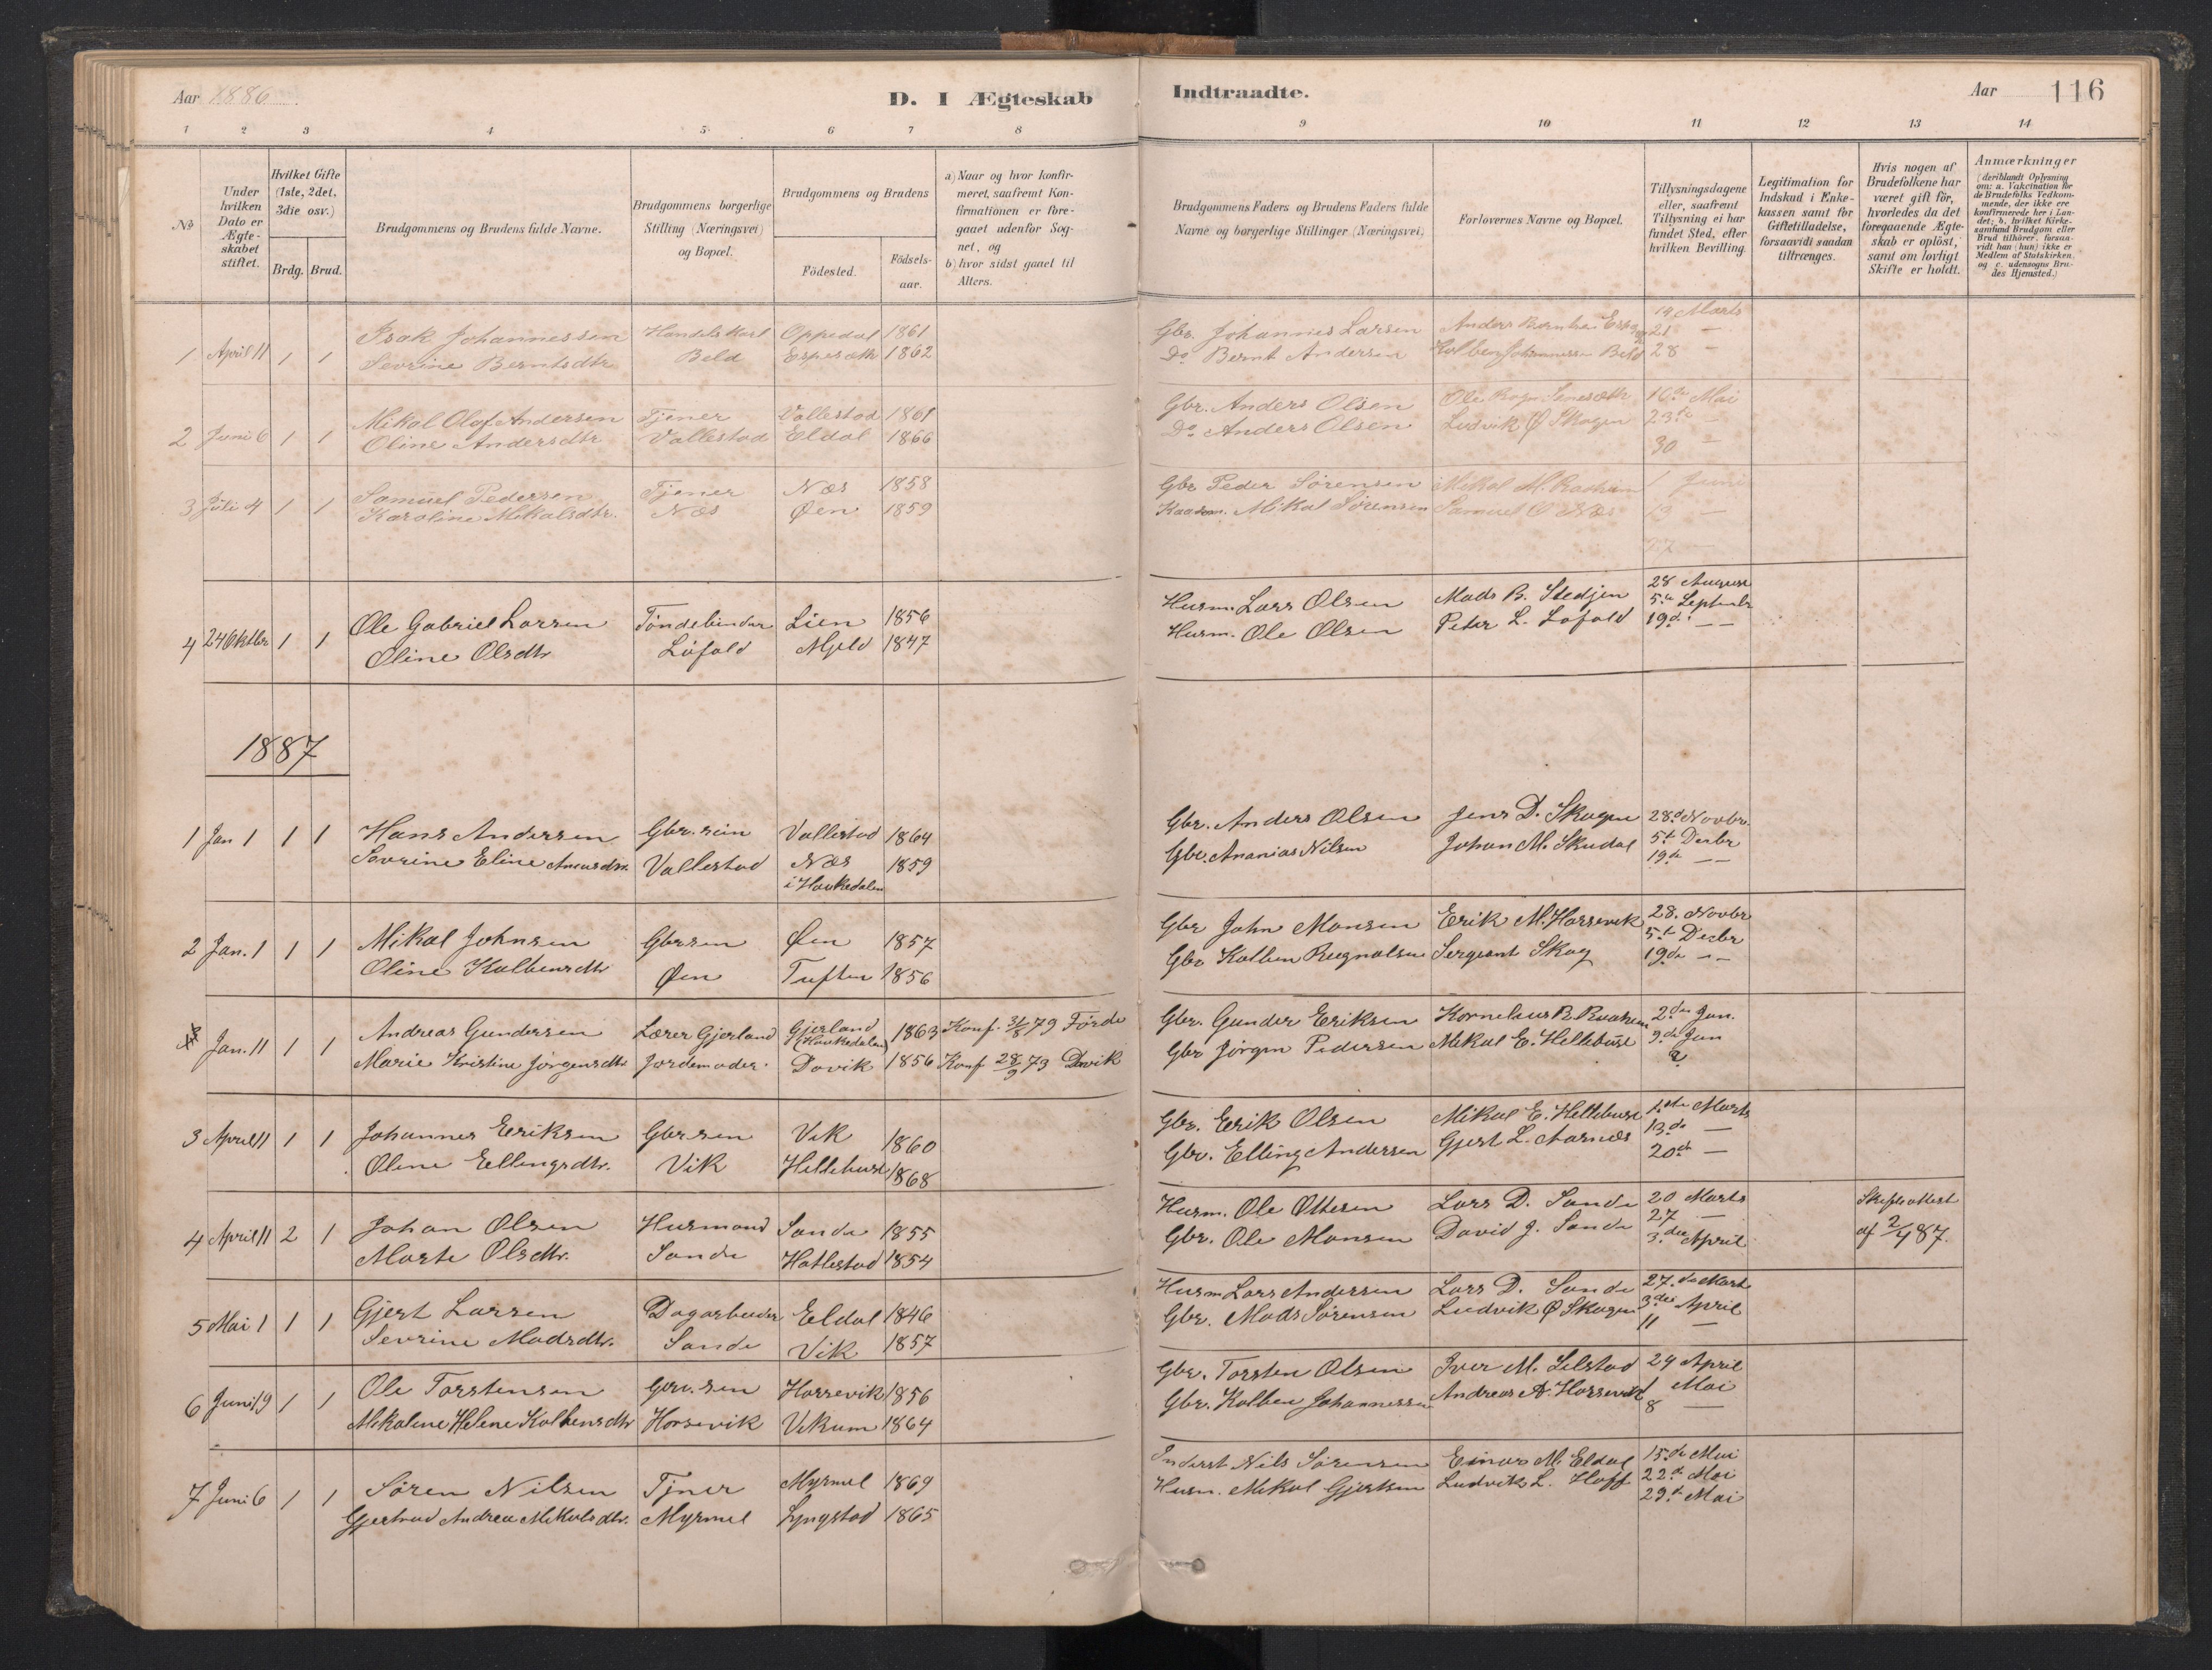 Aar 1886
D. I Ægteskab
Indtraadte.
Aar 116
1 2 3 4 5 6 7 8 9 10 11 12 13 14
No
Under hvilken Dato er Ægteskabet stiftet.
Hvilket Gifte (1ste, 2det, 3die osv.)
Brdg. Brud.
Brudgommens og Brudens fulde Navne.
Brudgommens borgerlige Stilling (Næringsvei) og Bopæl.
Brudgommens og Brudens
Födested.
Födsels-aar.
a) Naar og hvor konfirmeret, saafremt Konfirmationen er foregaaet udenfor Sognet, og
b) hvor sidst gaaet til Alters.
Brudgommens Faders og Brudens Faders fulde Navne og borgerlige Stillinger (Næringsvei)
Forlovernes Navne og Bopæl.
Tillysningsdagene eller, saafremt Tillysning ei har fundet Sted, efter hvilken Bevilling.
Legitimation for Indskud i Enkekassen samt for Giftetilladelse, forsaavidt saadan tiltrænges.
Hvis nogen af Brudefolkene har været gift för, hvorledes da det foregaaende Ægteskab er oplöst, samt om lovligt Skifte er holdt.
Anmærkninger (deriblandt Oplysning om: a. Vakcination for de Brudefolks Vedkommende, der ikke ere konfirmerede her i Landet; b. hvilket Kirkesamfund Brudgom eller Brud tilhörer, forsaavidt han (hun) ikke er Medlem af Statskirken, og c. udensogns Brudes Hjemsted.)
1 April 11 1 1 Isak Johannessen Handelskarl Oppedal 1861 Gbr. Johannes Larsen 14 Marts
Sevrine Berntsdtr Beld Espesæth 1862 Do Bernt Andersen Kolben Johannessen Beld 21 —
28 —
2 Juni 6 1 1 Mikal Olaf Andersen Tjener Vallestad 1861 Gbr. Anders Olsen 16de Mai
Oline Andersdtr Vallestad Eldal 1866 Do Anders Olsen Ludvik Ø Skagen 23de —
30 —
3 Juli 4 1 1 Samuel Pedersen Tjener Næs 1858 Gbr Peder Sørensen Juni
Karoline Mikalsdtr. Næs Øen 1859 Mikal Sørensen 13 —
4 24 Oktbr 1 1 Ole Gabriel Larsen Tøndebinder Lien 1856 Husm. Lars Olsen Mads B. Stedjen 28 August
Oline Olsdtr Löfald Mjeld 1847 Husm. Ole Olsen Peter L. Lofald 5te Septembr
19de —
1887
1 Jan 1 1 1 Hans Andersen Gbr. søn Vallestad 1864 Gbr. Anders Olsen Jens D. Skagen 28de Novbr.
Sevrine Eline Vallestad Næs i Haukedalen 1859 Gbr. Ananias Nilsen Johan M. Skudal 5te Decbr
19de —
2 Jan. 1 1 1 Mikal Johnsen Gbrsøn Øen 1857 Gbr John Monsen Erik M. Horsevik 28. Novbr
Oline Kolbensdtr Øen Tuften 1856 Gbr Kolben Sergeant Skag 5te Decbr
19de —
Jan. 11 1 1 Andreas Gundersen Lærer Gjerland Gjerland (Haukedalen) 1863 Konf. 31/8 79 Førde Gbr. Gunder Eriksen Kornelius R. 2den Jan.
Marie Kristine Jørgensdtr Jordemoder Davik 1856 Konf 28/9 73 Davik Gbr Jørgen Pedersen Mikal E. Hellebust 9de Jan
3 April 11 1 1 Johannes Eriksen Gbrsøn Vik 1860 Gbr. Erik Olsen Mikal E. Hellebust Marts
Oline Ellingsdtr. Vik Hellebust 1868 Gbr. Elling Andersen Gjert L. Aarnes 13de —
20de —
4 April 11 2 1 Johan Olsen Husmand Sande 1855 Husm. Ole Ottesen Lars D. Sande 20 Marts Skifteattest
Marte Olsdtr. Sande Hatlestad 1854 Gbr. Ole Monsen David J. Sande 27 — af 2/4 87.
3die April
5 Mai 1 1 1 Gjert Larsen Dagarbeider Eldal 1846 Husm Lars Andersen Lars D. Sande 27de Marts
Sevrine Madsdtr. Sande Vik 1857 Gbr. Mads Sørensen Ludvik Ø Skagen 3die April
11 —
6 Juni 19 1 1 Ole Torstensen Gbr. søn Horsevik 1856 Gbr. Torsten Olsen Iver M. Selstad 24 April
Mikaline Helene Kolbensdtr Horsevik Vikum 1864 Gbr. Kolben Johannessen Andreas A. Horsevik 1 Mai
8 —
7 Juni 6 1 1 Søren Nilsen Tjner Myrmel 1869 Inderst Nils Sørensen Einar M. Eldal 15de Mai
Gjertrud Andrea Mikalsdtr. Myrmel Lyngstad 1865 Husm. Mikal Gjertsen Ludvik L. Hoff 22de Mai
29de Mai